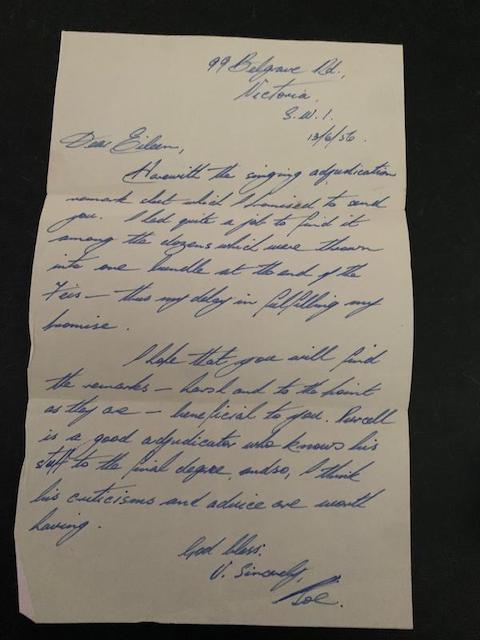 99 Belgrave Rd.,
Victoria,
S.W.1.
13/6/56
Dear Eileen,
Herewith the singing adjudication
remark sheet which I promised to send
you. I had quite a job to find it
among the dozens which were thrown
into one bundle at the end of the
Feis — thus my delay in fulfilling my
promise.
I hope that you will find
the remarks — harsh and to the point
as they are — beneficial to you. Purcell
is a good adjudicator who knows his
stuff to the final degree, and so, I think
his criticisms and advice are worth
having.
God bless.
V. Sincerely,